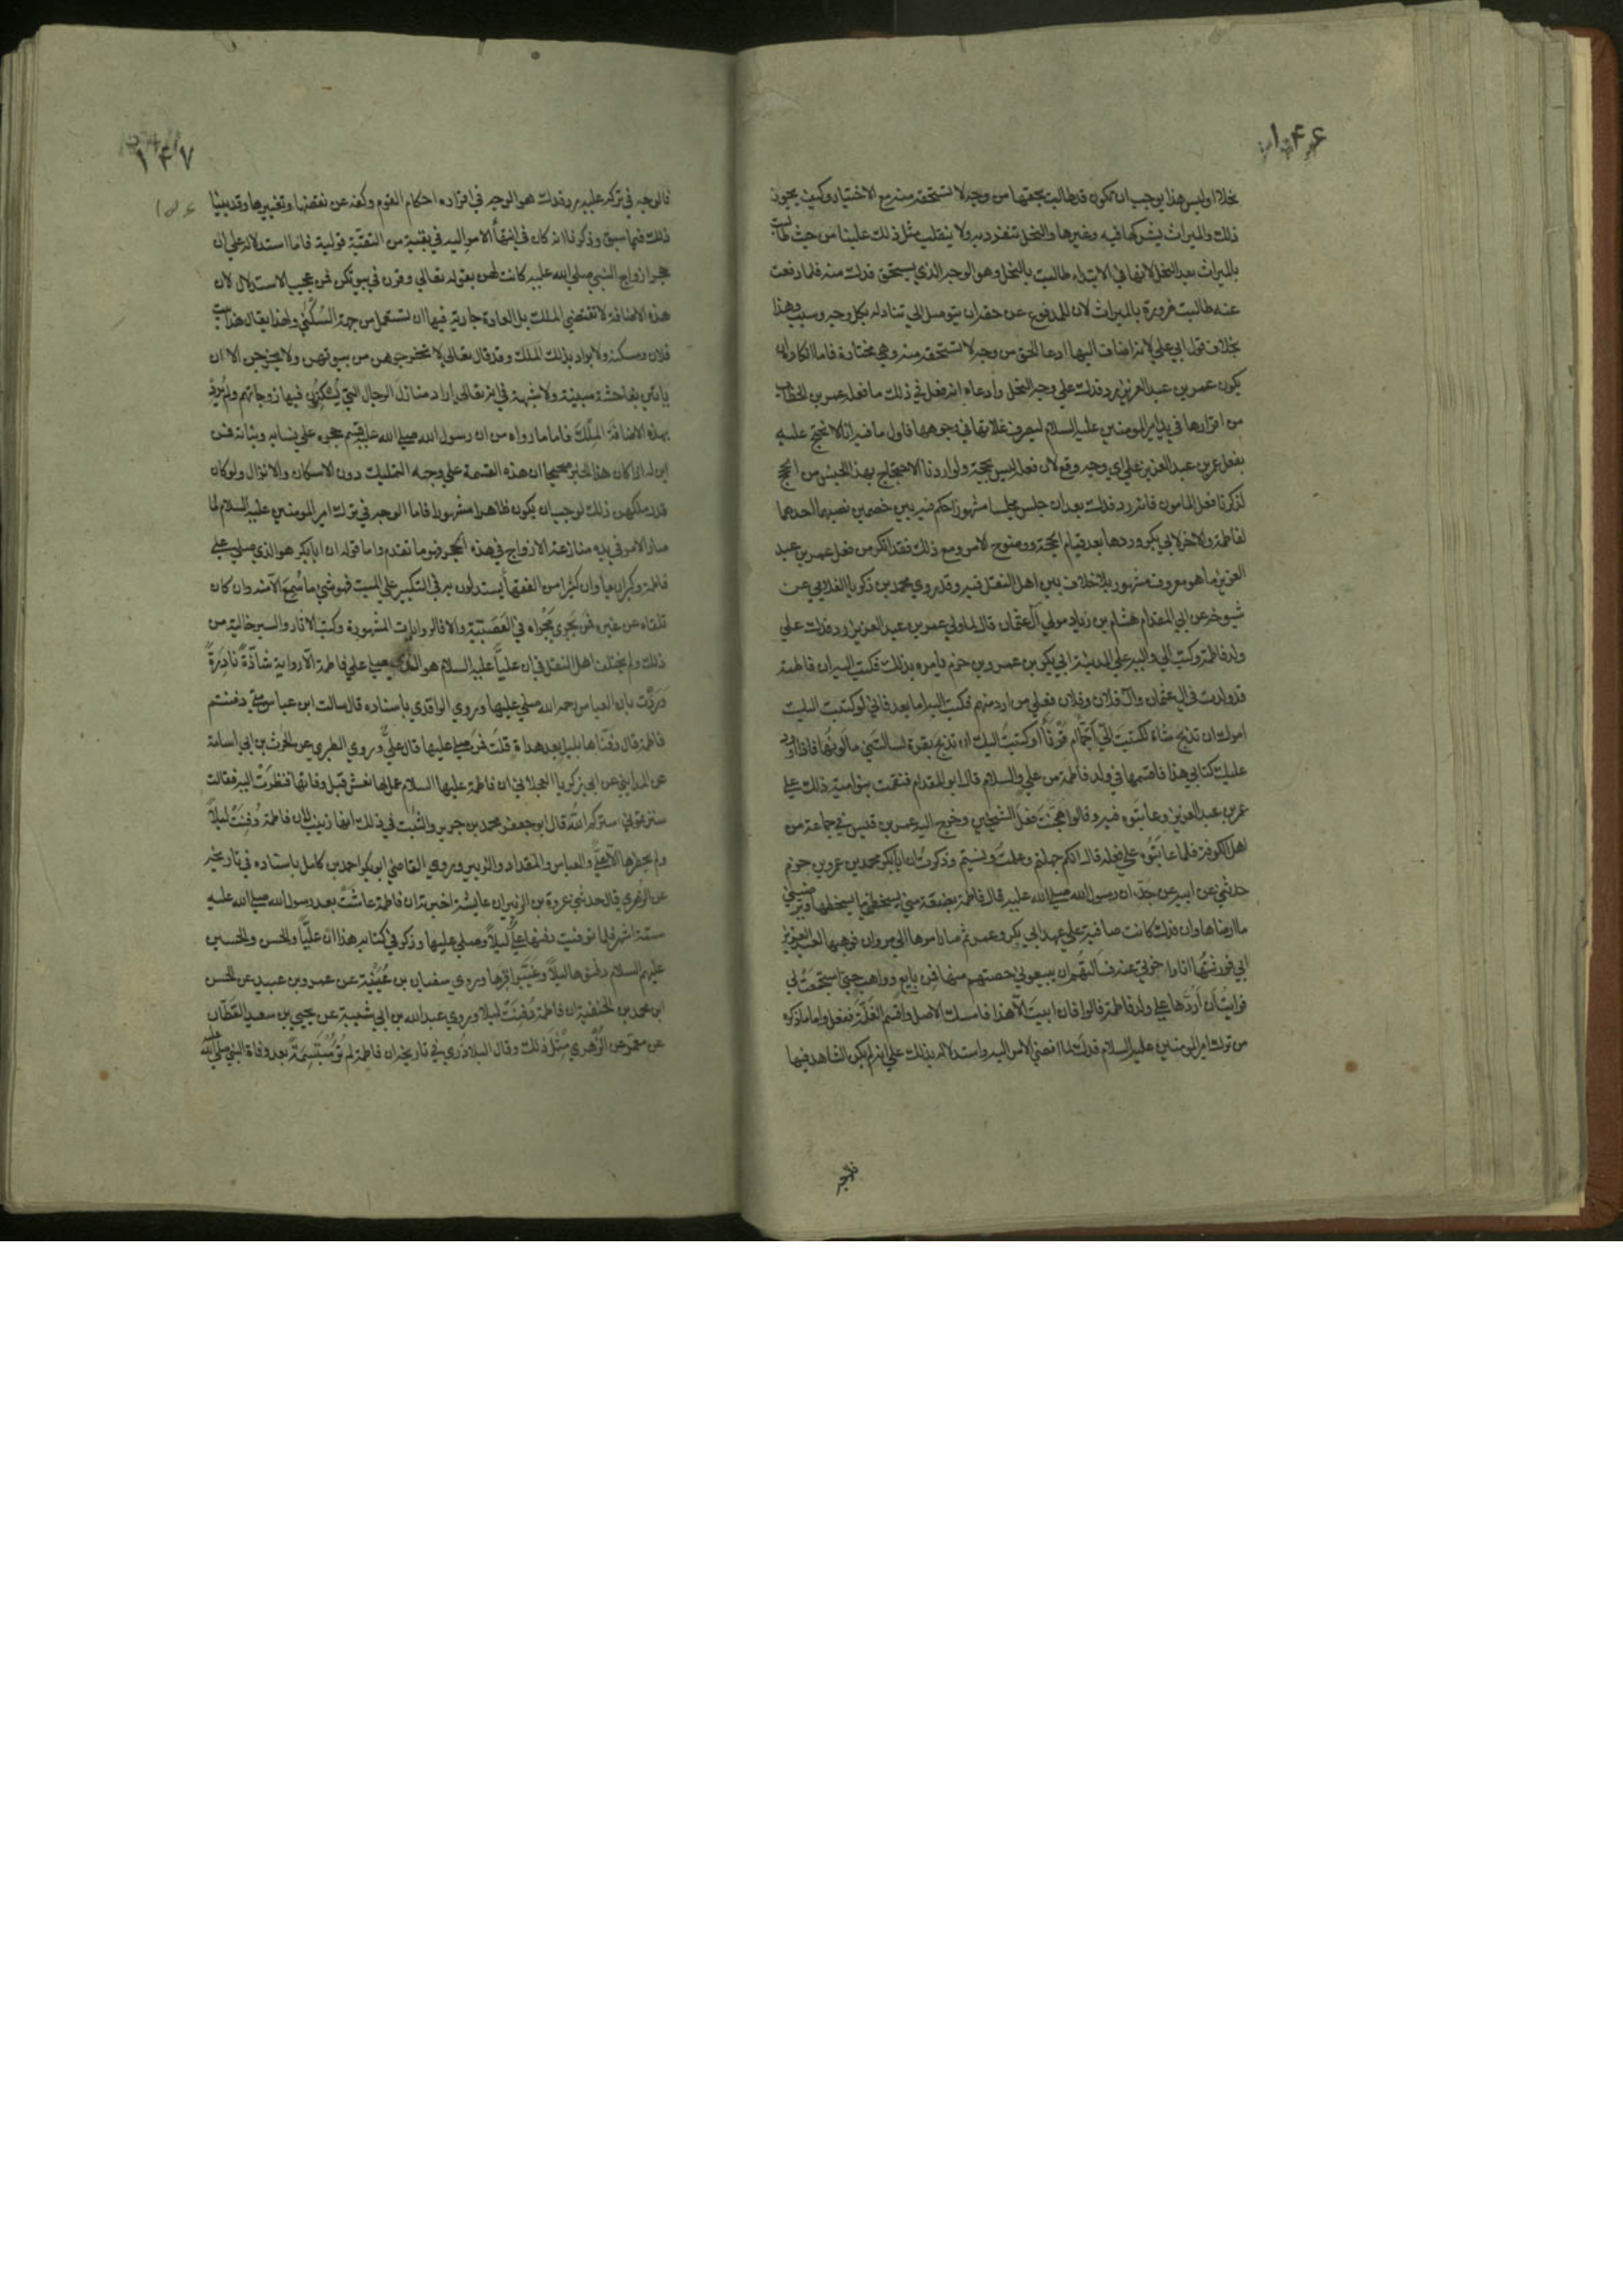 ۱۴۶
بخلافه اوليس هذا يوجب ان تكون قد طالبت بحقها من وجه لا تستحقه منه مع الاختيار وكيف يجوز
ذلك والميراث يشركها فيه وغيرها والنحل تنفرد به ولا ينقلب مثل ذلك علينا من حيث طالبت
بالميراث بعد النحل لانها في الابتداء طالبت بالنحل وهو الوجه الذي يستحق فدك منه فلما دفعت
عنه طالبت ضرورة بالميراث لان للمدفوع عن حقه ان يتوصل الى تناوله بكل وجه وسبب وهذا
بخلاف قول ابي علي لانه اضاف اليها ادعا الحق من وجه لا تستحقه منه وهي مختارة فاما انكاره ان
يكون عمر بن عبد العزيز رد فدك على وجه النحل وادعاه انه فعل في ذلك ما فعله عمر بن الخطاب
من اقرارها في يد امير المومنين عليه السلام ليصرف غلاتها في وجوهها فاول ما فيه انا لا نحتج عليه
بفعل عمر بن عبد العزيز على اي وجه وقع لان فعله ليس بحجة ولو اردنا الاحتجاج بهذا الجنس من الحجج
لذكرنا فعل المامون فانه رد فدك بعد ان جلس مجلسا مشهورا حكم فيه بين خصمين نصبهما احدهما
لفاطمة والاخر لابي بكر وردها بعد قيام الحجة ووضوح الامر ومع ذلك فقد انكر من فعل عمر بن عبد
العزيز ما هو معروف مشهور بلا خلاف بين اهل النقل فيه وقد روي محمد بن زكريا الغلابي عن
شيوخه عن ابي المقدام هشام بن زياد مولي آل عثمان قال لما ولي عمر بن عبد العزيز رد فدك على
ولد فاطمة وكتب الى واليه على المدينة ابي بكر بن عمرو بن حزم يامره بذلك فكتب اليه ان فاطمة
قد ولدت في آل عثمان وآل فلان وفلان فعلى من ارد منهم فكتب اليه اما بعد فاني لو كتبت اليك
امرك ان تذبح شاة لكتبت الي اجماء ام قرناء او كتبت اليك ان تذبح بقرة لسالتني ما لونها فاذا ورد
عليك كتابي هذا فاقسمها في ولد فاطمة من علي والسلام قال ابو المقدام فنقمت بنو امية ذلك على
عمر بن عبد العزيز وعاتبوه فيه وقالوا هجنت فعل الشيخين وخرج اليه عمر بن قيس في جماعة من
اهل الكوفة فلما عاتبوه على فعله قال انكم جهلتم وعلمت ونسيتم وذكرت ان ابا بكر محمد بن عمرو بن حزم
حدثني عن ابيه عن جده ان رسول الله صلى الله عليه قال فاطمة بضعة مني يسخطني ما يسخطها ويرضيني
ما ارضاها وان فدك كانت صافية على عهد ابي بكر وعمر ثم صار امرها الى مروان فوهبها لعبد العزيز
ابي فورثتها انا واخوتي عنه فسالتهم ان يبيعوني حصتهم منها فمن بايع وواهب حتى استجمعت لي
فرايت ان اردها على ولد فاطمة قالوا فان ابيت الا هذا فامسك الاصل واقسم الغلة ففعل واما ما ذكره
من ترك امير المومنين عليه السلام فدك لما افضي الامر اليه واستدلاله بذلك على انه لم يكن الشاهد فيها
۱۴۷
فالوجه في تركه عليه رد فدك هو الوجه في اقراره احكام القوم وكفه عن نقضها وتغييرها وقد بينا
ذلك فيما سبق وذكرنا انه كان في انتهاء الامر اليه في بقية من التقية قوية فاما استدلاله على ان
حجر ازواج النبي صلى الله عليه كانت لهن بقوله تعالى وقرن في بيوتكن فمن عجيب الاستدلال لان
هذه الاضافة لا تقتضي الملك بل العادة جارية فيها ان تستعمل من جهة السكنى ولهذا يقال هذا بيت
فلان ومسكنه ولا يراد بذلك الملك وقد قال تعالى لا تخرجوهن من بيوتهن ولا يخرجن الا ان
ياتين بفاحشة مبينة ولا شبهة في انه تعالى اراد منازل الرجال التي يسكنون فيها زوجاتهم ولم يرد
بهذه الاضافة الملك فاما ما رواه من ان رسول الله صلى الله عليه قسم حجره على نسايه وبناته فمن
اين له اذا كان هذا الخبر صحيحا ان هذه القسمة على وجه التمليك دون الاسكان والانزال ولو كان
قد ملكهن ذلك لوجب ان يكون ظاهرا مشهورا فاما الوجه في ترك امير المومنين عليه السلام لما
صار الامر في يده منازعة الازواج في هذه الحجر فهو ما تقدم واما قوله ان ابا بكر هو الذي صلى على
فاطمة وكبر اربعا وان كثيرا من الفقهاء يستدلون به في التكبير على الميت فهو شيء ما سمع الا منه وان كان
تلقاه عن غيره فمن يجري مجراه في العصبية والا فالروايات المشهورة وكتب الاثار والسير خالية من
ذلك ولم يختلف اهل النقل في ان عليا عليه السلام هو الذي صلى على فاطمة الا رواية شاذة نادرة
وردت بان العباس رحمه الله صلى عليها وروي الواقدي باسناده قال سالت ابن عباس متى دفنتم
فاطمة قال دفناها بليل بعد هداة قلت فمن صلى عليها قال علي وروي الطبري عن الحرث بن ابي اسامة
عن المدايني عن ابي زكريا العجلاني ان فاطمة عليها السلام عمل لها نعش قبل وفاتها فنظرت اليه فقالت
سترتموني ستركم الله قال ابو جعفر محمد بن جرير والثبت في ذلك انها زينب لان فاطمة دفنت ليلا
ولم يحضرها الا علي والعباس والمقداد والزبير وروي القاضي ابو بكر احمد بن كامل باسناده في تاريخه
عن الزهري قال حدثني عروة بن الزبير ان عايشة اخبرته ان فاطمة عاشت بعد رسول الله صلى الله عليه
ستة اشهر فلما توفيت دفنها علي ليلا وصلى عليها وذكر في كتابه هذا ان عليا والحسن والحسين
عليهم السلام دفنوها ليلا وغيبوا قبرها وروي سفيان بن عيينة عن عمرو بن عبيد عن الحسن
ابن محمد بن الحنفية ان فاطمة دفنت ليلا وروي عبد الله بن ابي شيبة عن يحيى بن سعيد القطان
عن معمر عن الزهري مثل ذلك وقال البلاذري في تاريخه ان فاطمة لم تر متبسمة بعد وفاة النبي صلى الله عليه